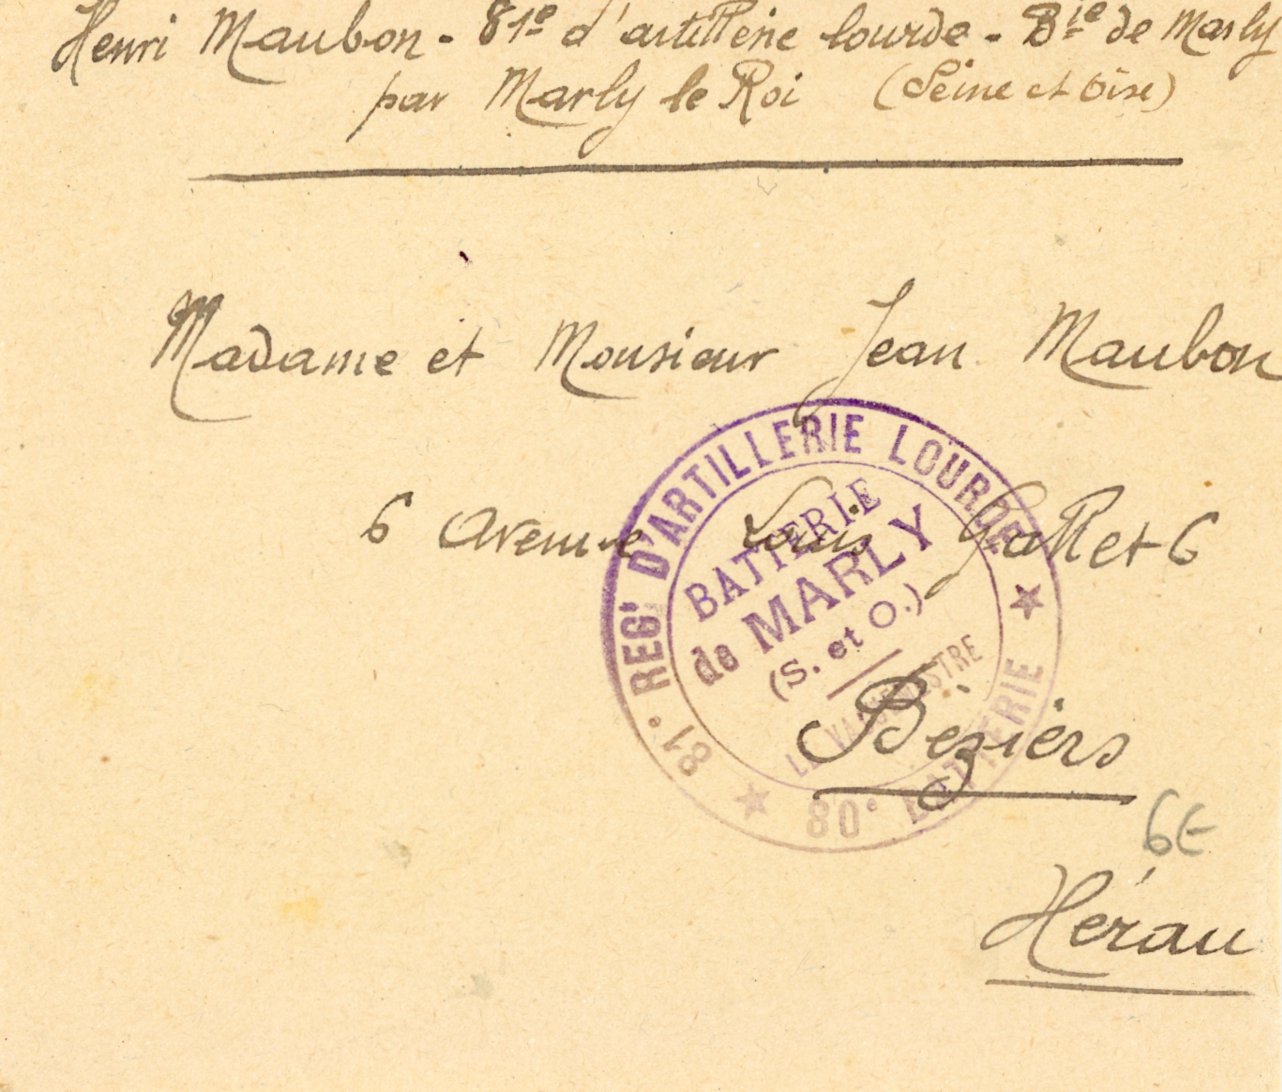 Henri Maubon - 81e d'artillerie lourde - Bie de Marly
par Marly le Roi (Seine et Oise)
Madame et Monsieur Jean Maubon
6 Avenue Louis Gallet 6
Béziers
Hérau
6€
81e REGt D'ARTILLERIE LOURDE
BATTERIE
de MARLY
(S. et O.)
LE VAGUEMESTRE
80e BATTERIE